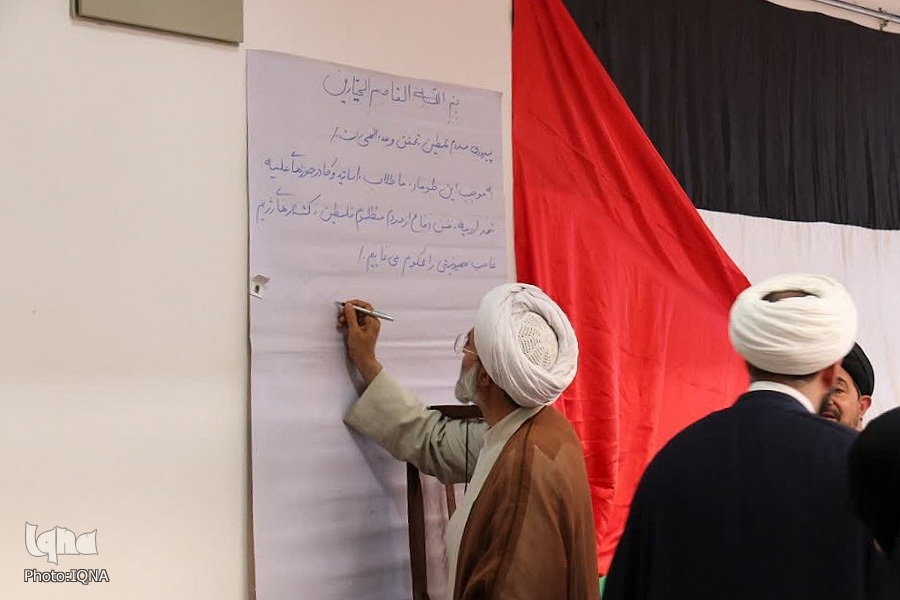 بسم الله القاصم الجبارین
پیروزی مردم فلسطین، تحقق وعده الهی است./
به موجب این طومار، ما طلاب، اساتید و کادر حوزه‌های علمیه
ضمن دفاع از مردم مظلوم فلسطین، کشتارهای رژیم
غاصب صهیونیستی را محکوم می نماییم./
iqna
Photo:IQNA